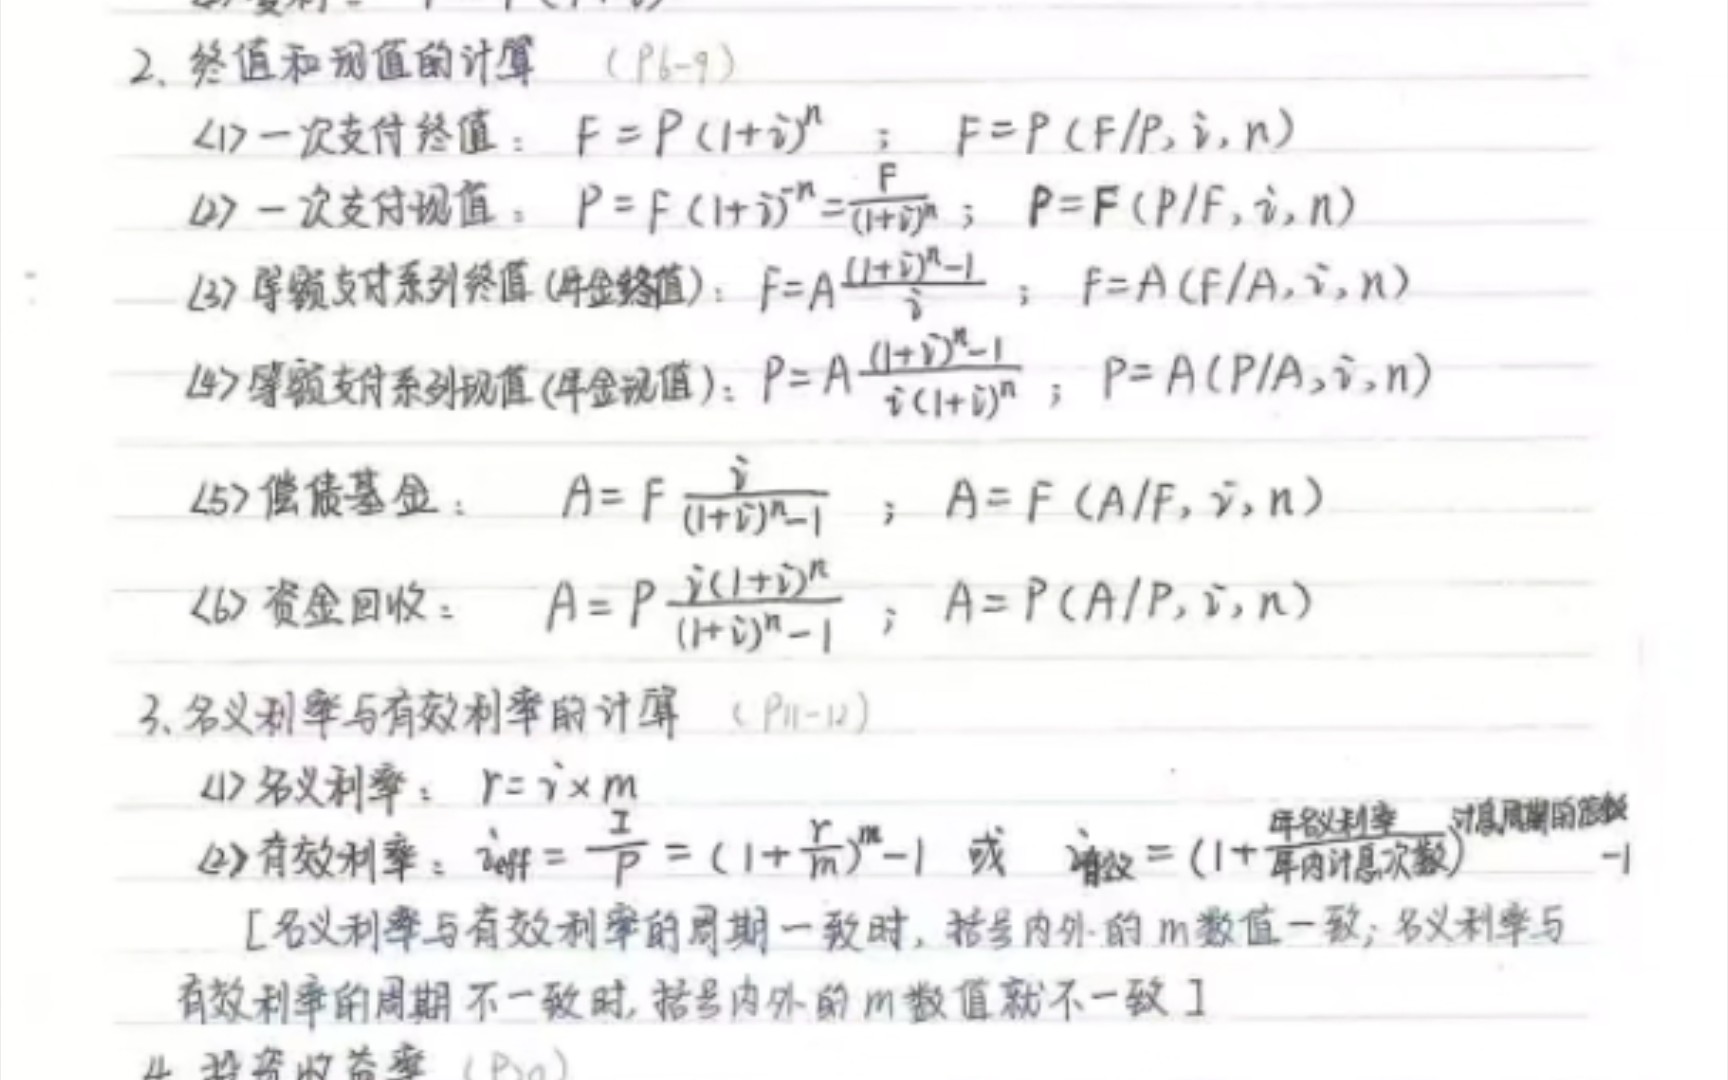 2、终值和现值的计算 (P6-9)
<1> 一次支付终值： F=P(1+i)^n ； F=P(F/P, i, n)
<2> 一次支付现值： P=F(1+i)^-n=F/(1+i)^n ； P=F(P/F, i, n)
<3> 等额支付系列终值(年金终值)： F=A((1+i)^n-1)/i ； F=A(F/A, i, n)
<4> 等额支付系列现值(年金现值)： P=A((1+i)^n-1)/(i(1+i)^n) ； P=A(P/A, i, n)
<5> 偿债基金： A=F i/((1+i)^n-1) ； A=F(A/F, i, n)
<6> 资金回收： A=P (i(1+i)^n)/((1+i)^n-1) ； A=P(A/P, i, n)
3、名义利率与有效利率的计算 (P11-12)
<1> 名义利率： r=i×m
<2> 有效利率： i_eff=I/P=(1+r/m)^m-1 或 i有效=(1+年名义利率/年内计息次数)^计息周期的-1
[名义利率与有效利率的周期一致时，括号内外的m数值一致；名义利率与
有效利率的周期不一致时，括号内外的m数值就不一致]
4、投资收益率 (P20)